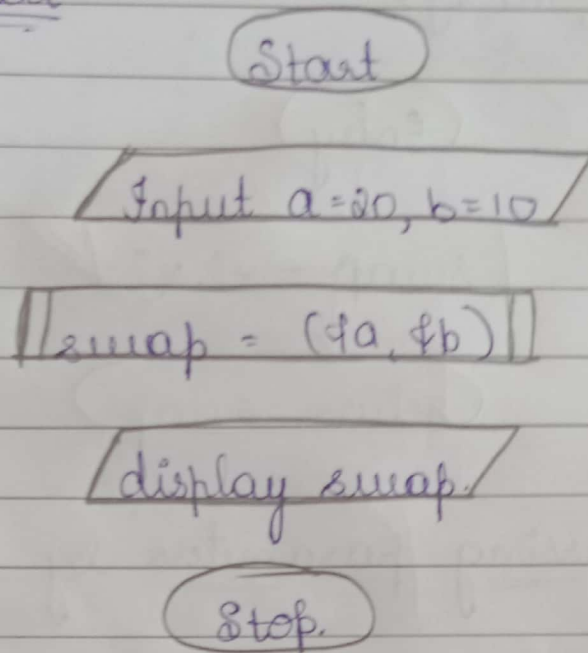 Start
Input a=20, b=10
swap = (&a, &b)
display swap.
Stop.